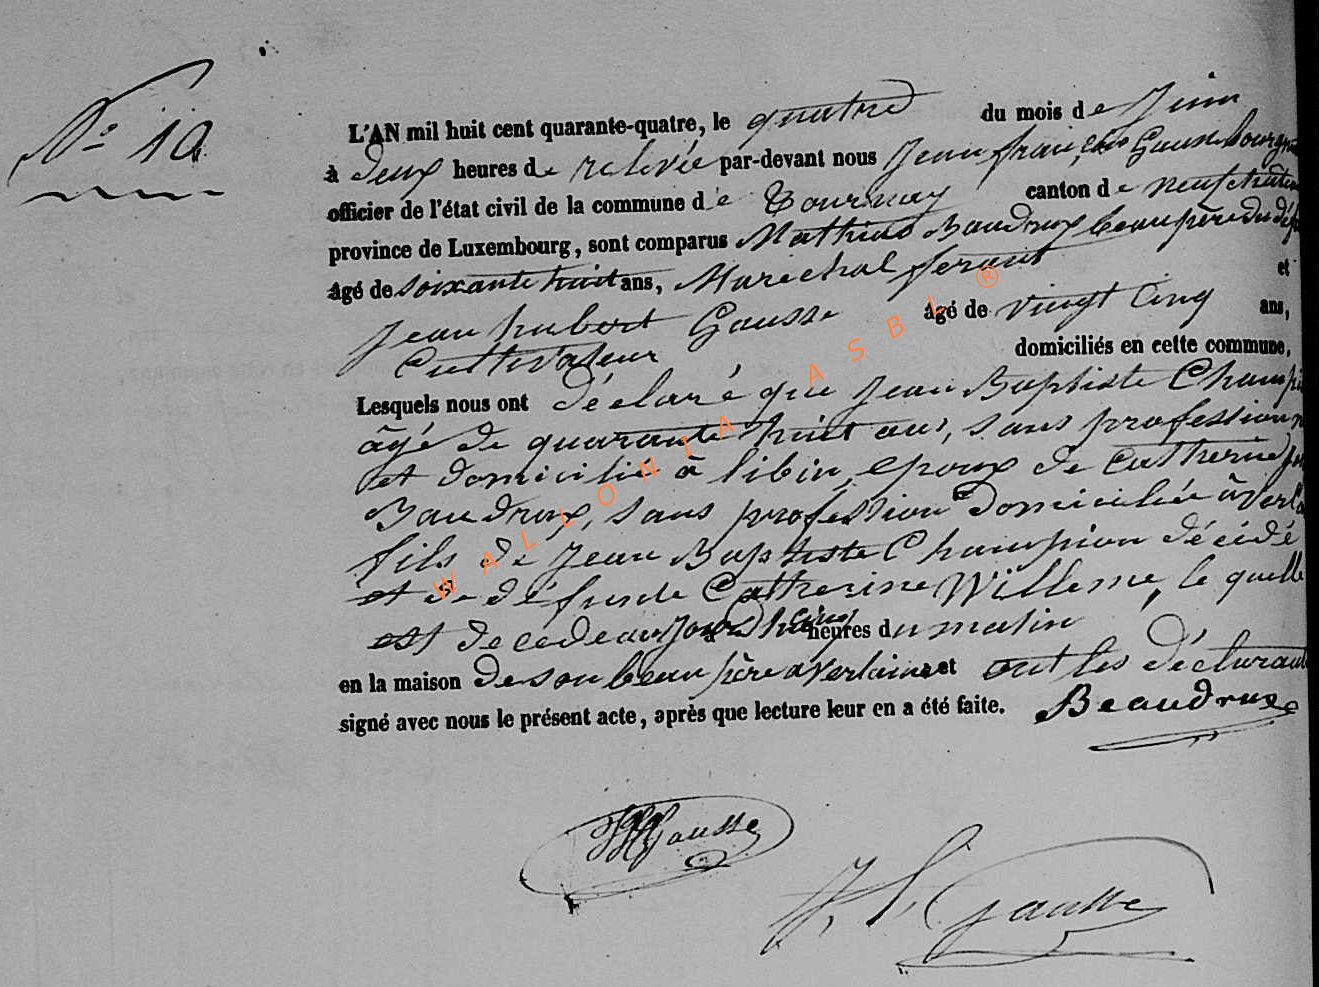 N° 10
L'AN mil huit cent quarante-quatre, le quatre du mois de Juin
à deux heures de relevée par-devant nous Jean françois Gausse bourgm
officier de l'état civil de la commune de Tournay canton de neufchâteau
province de Luxembourg, sont comparus Mathieu Baudrux beau père du déf
âgé de soixante huit ans, Maréchal ferant et
Jean hubert Gausse âgé de vingt Cinq ans,
Cultivateur domiciliés en cette commune,
Lesquels nous ont déclaré que Jean Baptiste Champi
âgé de quarante huit ans, sans profession n
et domicilié à libin, epoux de Catherine
Baudrux, sans profession domiciliée à Verla
fils de Jean Baptiste Champion décidé
et de défunte Catherine Willeme, le quelle
est decede aujour à cinq heures du matin
en la maison de son beau père a Verlaine et ont les déclarant
signé avec nous le présent acte, après que lecture leur en a été faite. Beaudrux
JHGausse
J. f. Gausse
WALLONIA ASBL ®